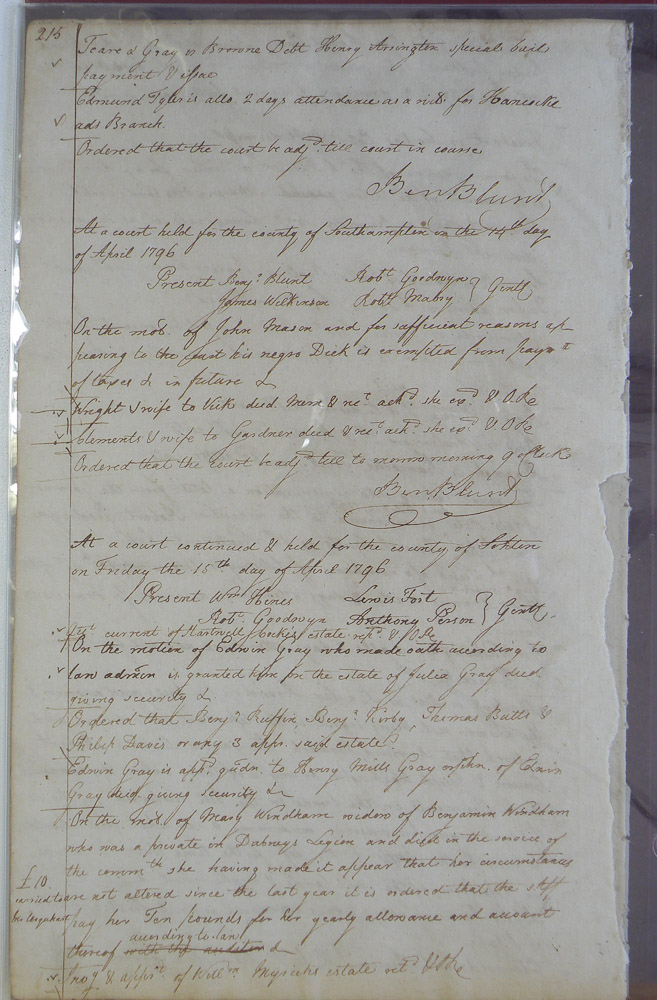 215
Teare & Gray vs Browne Debt Henry Arrington special bail
payment & issue
Edmund Tyler is allo. 2 days attendance as a wit. for Hancocke
ads Branch.
Ordered that the court be adjd. till court in course
Ben Blunt
At a court held for the county of Southampton on the 14th day
of April 1796
Present Benja. Blunt Robt. Goodwyn
James Wilkinson Robt. Mabry } Gentl
On the mot. of John Mason and for sufficient reasons ap-
pearing to the court his negro Dick is exempted from paymt.
of taxes & in future &
Wright & wife to Vick deed. Mem & rect. ackd. she exd. & O.Re
Clements & wife to Gardner deed & rect. ackd. she exd. & O Re
Ordered that the court be adjd. till to morrow morning 9 o'clock
Ben Blunt
At a court continued & held for the county of Sohton
on Friday the 15th day of April 1796
Present Wm Hines Lewis Fort
Robt. Goodwyn Anthony Person } Gentl.
current of Hartwell Cockes estate retd. & O Re
On the motion of Edwin Gray who made oath according to
law admon is granted him on the estate of Julia Gray deed.
giving security &
Ordered that Benja. Ruffin, Benja. Kirby, Thomas Butts &
Philip Davis or any 3 appr. said estate
Edwin Gray is appd. gudn. to Henry Mills Gray orphn. of Edwin
Gray decd. giving security &
On the mot. of Mary Windham widow of Benjamin Windham
who was a private in Dabneys Legion and died in the service of
the commth she having made it appear that her circumstances
£10.
carried to are not altered since the last year it is ordered that the shff
pay her Ten pounds for her yearly allowance and account
according to law
thereof with the auditors &
Invy. & apprt. of Willm. Myricks estate retd. & O Re